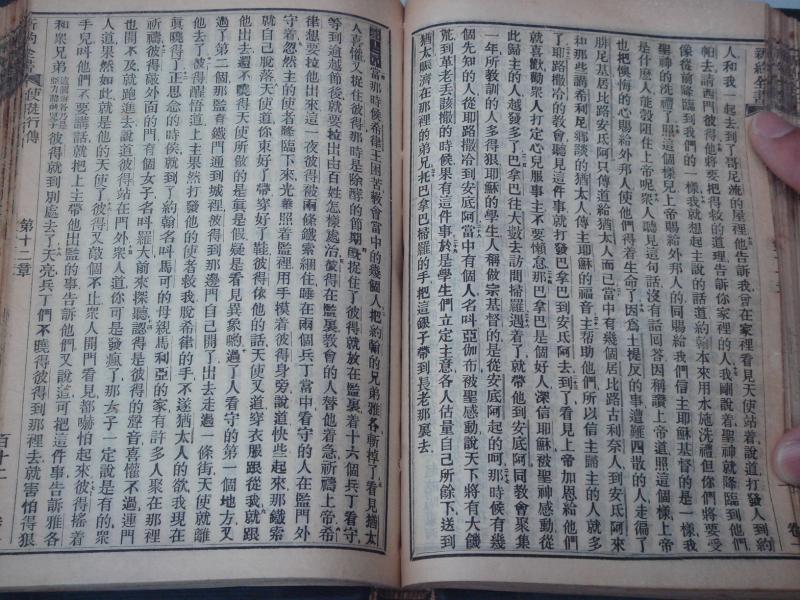 人和我一起去到了哥尼流的屋裡他告訴我曾在家裡看見天使站着說道打發人到約
帕去請西門彼得他將要把得救的道理告訴你家裡的人我剛說着聖神就降臨到他們
像從前降臨到我們的一樣我就想起主說的話道約翰本來用水施洗禮但你們將要受
聖神的洗禮了照這個樣兒上帝賜給外邦人的同賜給我們信主耶穌基督的是一樣我
是什麼人能彀阻住上帝呢衆人聽見這句話沒有話回答因稱讚上帝道照這個樣上帝
也把懊悔的心賜給外邦人使他們得着生命了因爲士提反的事遭難四散的人走徧了
腓尼基居比路安氐阿只傳道給猶太人而已當中有幾個居比路古利奈人到安氐阿來
和那些講希利尼鄉談的猶太人傳主耶穌的福音主帮助他們所以信主歸主的人就多
了耶路撒冷的敎會聽見這件事就打發巴拿巴到安氐阿去到了看見上帝加恩給他們
就喜歡勸衆人打定心兒服事主不要懶怠那巴拿巴是個好人深信耶穌被聖神感動從
此歸主的人越發多了巴拿巴往大數去訪問掃羅遇着了就帶他到安氐阿同敎會聚集
一年所教訓的人多得狠耶穌的學生人稱做宗基督的是從安氐阿起的呵那時候有幾
個先知的人從耶路撒冷到安氐阿當中有個人名叫亞伽布被聖感動說天下將有大饑
荒到革老丟該撒的時候果有這件事於是學生們立定主意各人估量自己所餘下送到
猶太賑濟在那裡的弟兄托巴拿巴掃羅的手把這銀子帶到長老那裏去
當那時候希律王困苦敎會當中的幾個人把約翰的兄弟雅各斬掉了看見猶太
人喜懽又捉住彼得那時是除酵的節期旣捉住了彼得就放在監裏着十六個兵丁看守
等到逾越節後就要拉出由百姓怎樣處治彼得在監裏敎會的人替他着急祈禱上帝希
律想要拉他出來這一夜彼得被兩條鐵索綑住睡在兩個兵丁當中看守的人在監門外
守着忽然主的使者降臨下來光華照着監裡用手摸着彼得身旁說道快些起來那鐵索
就自己脫落天使道你束好了帶穿好了鞋彼得依他的話天使又道穿衣服跟從我就跟
他出去還不曉得天使所做的是眞是假疑是看見異象喲過了人看守的第一個地方又
過了第二個那監有鐵門通到城裡彼得到那邊門自己開了出去走過一條街天使就離
他去了彼得醒悟道主果然打發他的使者救我脫希律的手不遂猶太人的欲我現在
眞曉得了正思念的時候就到了約翰名叫馬可的母親馬利亞的家有許多人聚在那裡
祈禱彼得敲外面的門有個女子名叫羅大前來探聽認得是彼得的聲音喜懽不過連門
也開不及就跑進去說道彼得站在門外衆人道你可是發瘋了那女子一定說是有的衆
人道果然如此就是他的天使了彼得又敲個不止衆人開門看見都嚇怕起來彼得搖着
手兒叫他們不要講話就把上主帶他出監的事告訴他們又說道可把這件事告訴雅各
和衆兄弟彼得就到別處去了天亮兵丁們不曉得彼得到那裡去就害怕得狠
使徒行傳
第十二章